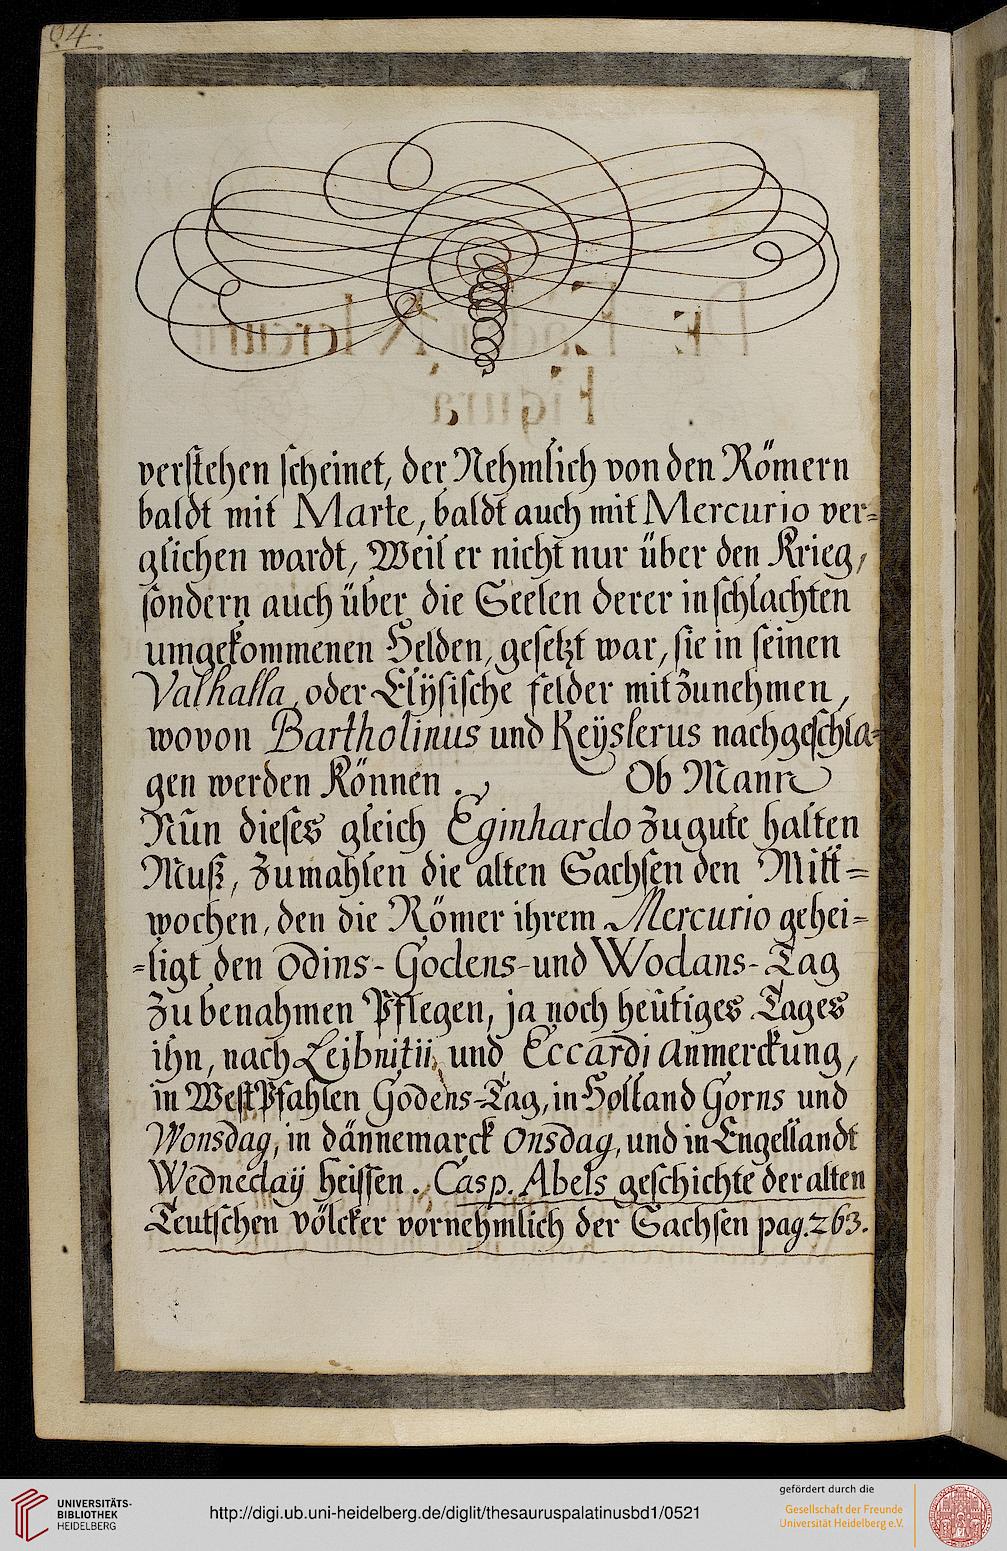 64.
verstehen scheinet, der Nehmlich von den Römern
baldt mit Marte, baldt auch mit Mercurio ver=
glichen wardt, Weil er nicht nur über den Krieg,
sondern auch über die Seelen derer in schlachten
umgekommenen Helden, gesetzt war, sie in seinen
Valhalla, oder Elÿsische felder mit zunehmen,
wovon Bartholinus und Keÿslerus nachgeschla=
gen werden Können. Ob Mann
Nun dieses gleich Eginhardo zu gute halten
Muß, zumahlen die alten Sachsen den Mitt=
wochen, den die Römer ihrem Mercurio gehei=
=ligt den Odins- Godens- und Wodans- Tag
zu benahmen Pflegen, ja noch heutiges Tages
ihn, nach Leibnitii, und Eccardi Anmerckung,
in WestPfahlen Godens-Tag, in Holland Gorns und
Wonsdag, in dännemarck Onsdag, und in Engellandt
Wednedaÿ heissen. Casp. Abels geschichte der alten
Teutschen völcker vornehmlich der Sachsen pag. 263.
UNIVERSITÄTS-
BIBLIOTHEK
HEIDELBERG
http://digi.ub.uni-heidelberg.de/diglit/thesauruspalatinusbd1/0521
gefördert durch die
Gesellschaft der Freunde
Universität Heidelberg e.V.